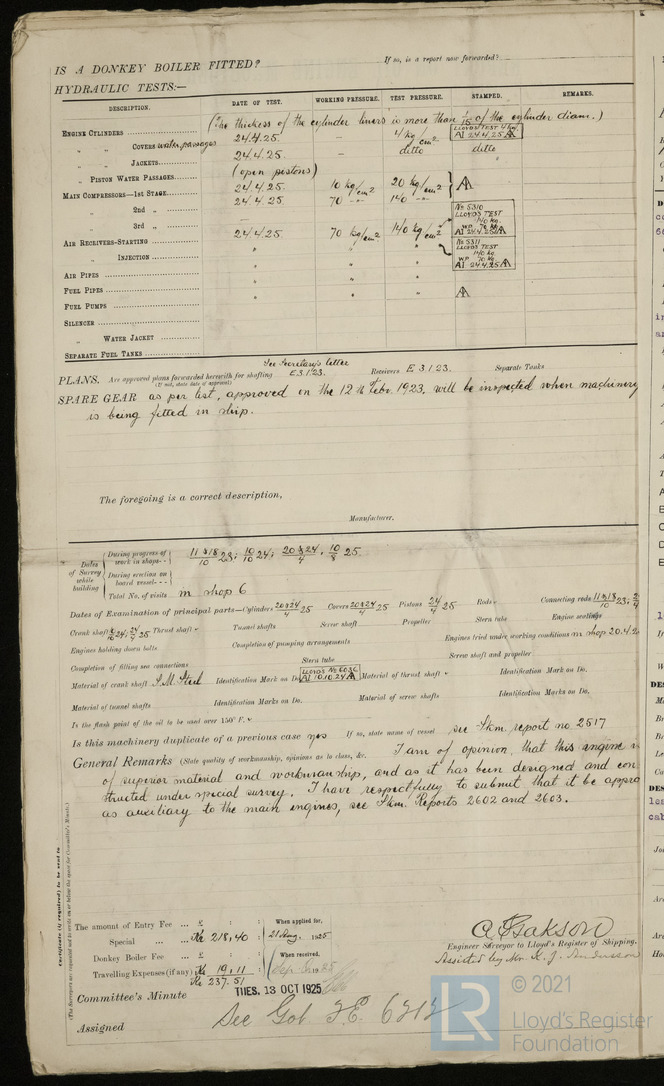 IS A DONKEY BOILER FITTED? If so, is a report now forwarded?
HYDRAULIC TESTS:—
DESCRIPTION. DATE OF TEST. WORKING PRESSURE. TEST PRESSURE. STAMPED. REMARKS.
(The thickess of the cylinder liners is more than 1/15 of the cylinder diam.)
ENGINE CYLINDERS 24.4.25. – 4 kg/cm2 LLOYDS TEST 4 kg. AI 24.4.25
" " COVERS water passages 24.4.25. – ditto ditto
" " JACKETS
" PISTON WATER PASSAGES (open pistons)
MAIN COMPRESSORS—1st STAGE 24.4.25 10 kg/cm2 20 kg/cm2
" 2nd " 24.4.25. 70 -"- 140 -"-
" 3rd " —
AIR RECEIVERS—STARTING 24.4.25. 70 kg/cm2 140 kg/cm2 No 5310 LLOYD'S TEST 140 kg. WP 70 kg AI 24.4.25
" INJECTION " " " No 5311 LLOYD'S TEST 140 kg WP 70 kg. AI 24.4.25
AIR PIPES " " "
FUEL PIPES " " "
FUEL PUMPS
SILENCER
" WATER JACKET
SEPARATE FUEL TANKS
See Secretary's letter
PLANS. Are approved plans forwarded herewith for shafting E 3.1.23. Receivers E 3.1.23. Separate Tanks
(If not, state date of approval)
SPARE GEAR as per list, approved on the 12th of Febr. 1923, will be inspected when machinery
is being fitted in ship.
The foregoing is a correct description,
Manufacturer.
Dates of Survey while building
During progress of work in shops-- 11 & 18/10 23; 10/10 24; 20 & 24/4, 10/8 25
During erection on board vessel---
Total No. of visits in shop 6
Dates of Examination of principal parts—Cylinders 20 & 24/4 25 Covers 20 & 24/4 25 Pistons 24/4 25 Rods " Connecting rods 11 & 18/10 23;
Crank shaft 24; 24/4 25 Thrust shaft Tunnel shafts Screw shaft Propeller Stern tube Engine seatings
Engines holding down bolts Completion of pumping arrangements Engines tried under working conditions in shop 20.4.2
Completion of fitting sea connections Stern tube Screw shaft and propeller
Material of crank shaft S.M. Steel Identification Mark on Do. LLOYDS No 6030 AI 10.10.24 Material of thrust shaft Identification Mark on Do.
Material of tunnel shafts Identification Marks on Do. Material of screw shafts Identification Marks on Do.
Is the flash point of the oil to be used over 150° F.
Is this machinery duplicate of a previous case yes If so, state name of vessel see Skm. report no. 2517
General Remarks (State quality of workmanship, opinions as to class, &c. I am of opinion, that this engine is
of superior material and workmanship, and as it has been designed and con
structed under special survey. I have respectfully to submit that it be appro
as auxiliary to the main engines, see Skm. Reports 2602 and 2603.
Certificate (if required) to be sent to
(The Surveyors are requested not to write on or below the space for Committee's Minute.)
The amount of Entry Fee ... £ : : When applied for,
Special ... ... Kr 218,40 : 21 Aug. 1925
Donkey Boiler Fee ... £ : : When received,
Travelling Expenses (if any) Kr 19,11 :
Kr 237.51
Engineer Surveyor to Lloyd's Register of Shipping.
Assisted by Mr.
Committee's Minute TUES. 13 OCT 1925
Assigned See Got. F.E. 6212
LR © 2021
Lloyd's Register
Foundation